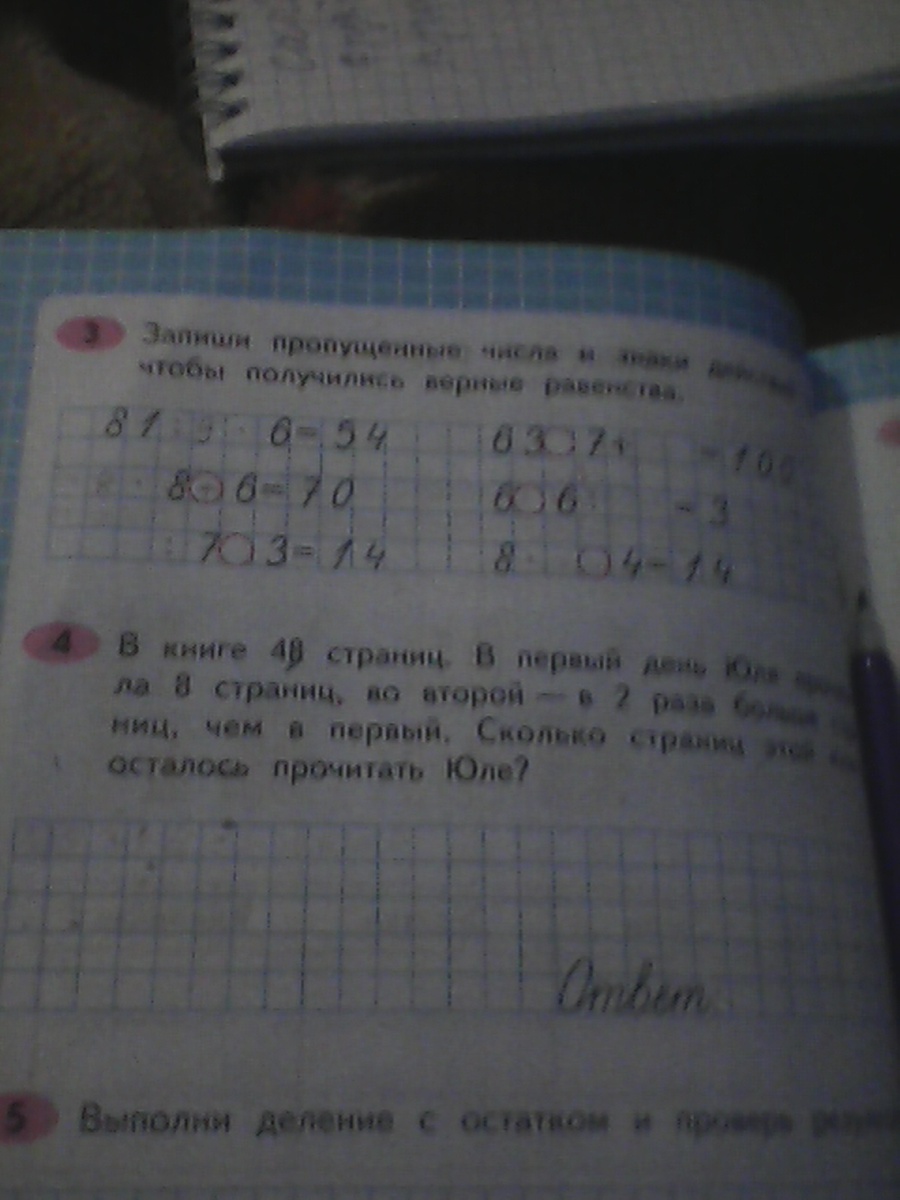 3 Запиши пропущенные числа и знаки
чтобы получились верные равенства.
81 : 9 · 6 = 54 63 7 + = 100
8 + 6 = 70 6 6 : = 3
: 7 3 = 14 8 · 4 = 14
4 В книге 48 страниц. В первый день Юля
ла 8 страниц, во второй — в 2 раза больше
ниц, чем в первый. Сколько страниц этой
осталось прочитать Юле?
Ответ
5 Выполни деление с остатком и проверь